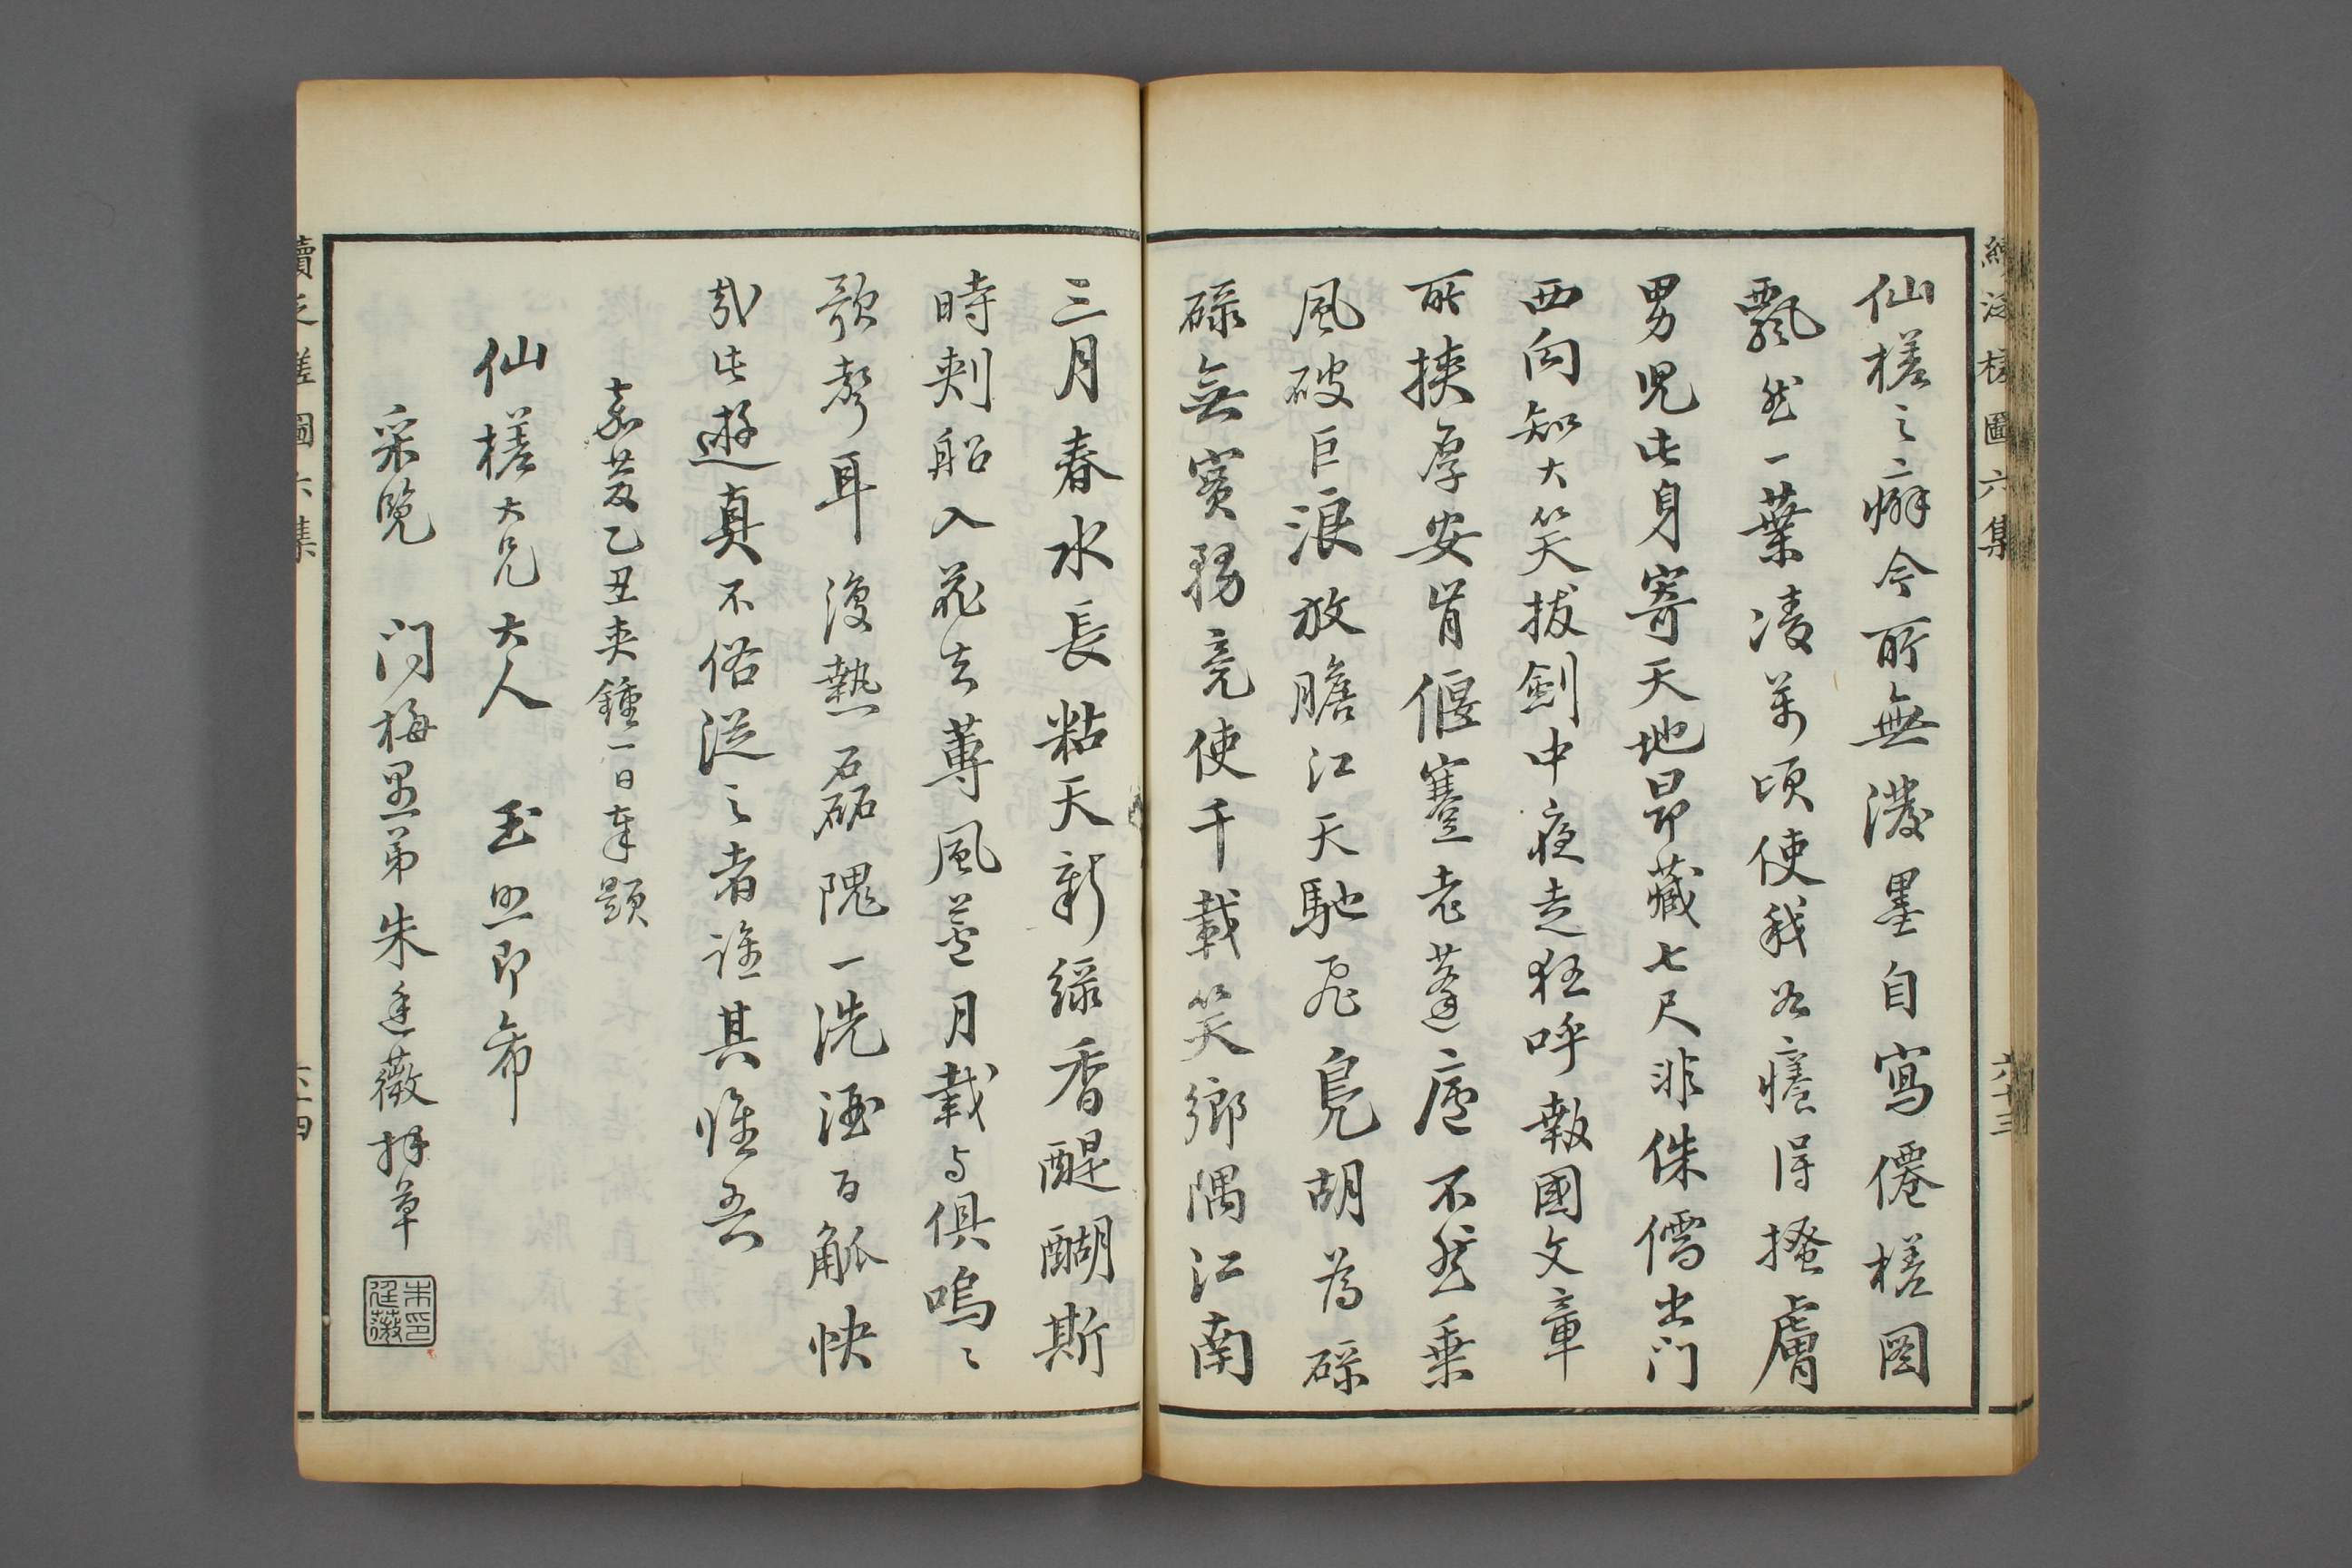 續泛槎圖六集
六十三
仙槎之癖今所無潑墨自寫僊槎圖
飄然一葉凌萬頃使我如癢得搔膚
男兒此身寄天地昂藏七尺非侏儒出门
西向知大笑拔劍中夜走狂呼報國文章
所挾厚安肯偃蹇老蓬廬不然乗
風破巨浪放膽江天馳飛鳧胡為碌
碌無賓務竟使千載笑鄉隅江南
三月春水長粘天新綠香醍醐斯
時刺船入花去蓴風菱月載与俱嗚〻
歌聲耳後熱磊磈一洗酒百觚快
哉此遊真不俗從之者誰其惟吾
嘉慶乙丑夾鍾一日奉題
仙槎大兄大人 玉照即希
采覽 门梅里弟朱逢薇拜草
朱印逢薇
續泛槎圖六集
六十四